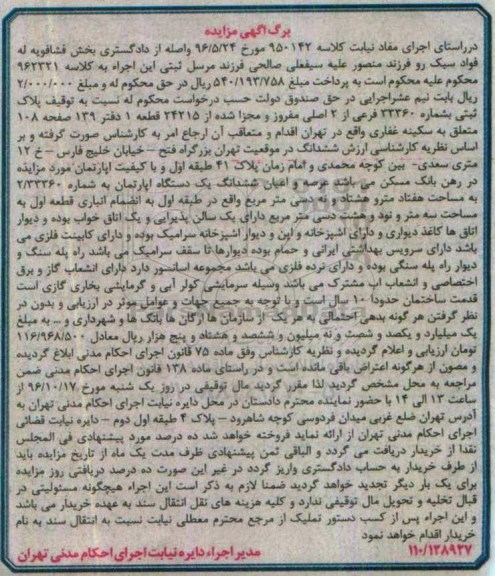 برگ آگهی مزایده
درراستای اجرای مفاد نیابت کلاسه ۹۵۰۱۴۲ مورخ ۹۶/۵/۲۴ واصله از دادگستری بخش فشافویه له
فواد سبک رو فرزند منصور علیه سیفعلی صالحی فرزند مرسل ثبتی این اجراء به کلاسه ۹۶۲۳۲۱
محکوم علیه محکوم است به پرداخت مبلغ ۵۴۰/۱۹۳/۷۵۸ ریال در حق محکوم له و مبلغ ۲/۰۰۰/۰۰۰
ریال بابت نیم عشراجرایی در حق صندوق دولت حسب درخواست محکوم له نسبت به توقیف پلاک
ثبتی بشماره ۳۳۳۶۰ فرعی از ۲ اصلی مفروز و مجزا شده از ۲۴۲۱۵ قطعه ۱ دفتر ۱۳۹ صفحه ۱۰۸
متعلق به سکینه غفاری واقع در تهران اقدام و متعاقب آن ارجاع امر به کارشناس صورت گرفته و بر
اساس نظریه کارشناسی ارزش ششدانگ در موقعیت تهران بزرگراه فتح – خیابان خلیج فارس – خ ۱۲
متری سعدی- بین کوچه محمدی و امام زمان پلاک ۴۱ طبقه اول و با کیفیت آپارتمان مورد مزایده
در رهن بانک مسکن می باشد عرصه و اعیان ششدانگ یک دستگاه آپارتمان به شماره ۲/۳۳۳۶۰
به مساحت هفتاد مترو هشتاد و نه دسی متر مربع واقع در طبقه اول به انضمام انباری قطعه اول به
مساحت سه متر و نود و هشت دسی متر مربع دارای یک سالن پذیرایی و یک اتاق خواب بوده و دیوار
اتاق ها کاغذ دیواری و دارای آشپزخانه و اپن و دیوار آشپزخانه سرامیک بوده و دارای کابینت فلزی می
باشد دارای سرویس بهداشتی ایرانی و حمام بوده دیوارها تا سقف سرامیک می باشد راه پله سنگ و
دیوار راه پله سنگی بوده و دارای نرده فلزی می باشد مجموعه آسانسور دارد دارای انشعاب گاز و برق
اختصاصی و انشعاب آب مشترک می باشد وسیله سرمایشی کولر آبی و گرمایشی بخاری گازی است
قدمت ساختمان حدوداً ۱۰ سال است و با توجه به جمیع جهات و عوامل موثر در ارزیابی و بدون در
نظر گرفتن هر گونه بدهی احتمالی به هر یک از سازمان ها ارگان ها بانک ها و شهرداری و ... به مبلغ
یک میلیارد و یکصد و شصت و نه میلیون و ششصد و هشتاد و پنج هزار ریال معادل ۱۱۶/۹۶۸/۵۰۰
تومان ارزیابی و اعلام گردیده و نظریه کارشناس وفق ماده ۷۵ قانون اجرای احکام مدنی ابلاغ گردیده
و مصون از هرگونه اعتراض باقی مانده است و در راستای ماده ۱۳۸ قانون اجرای احکام مدنی ضمن
مراجعه به محل مشخص گردید لذا مقرر گردید مال توقیفی در روز یک شنبه مورخ ۹۶/۱۰/۱۷ از
ساعت ۱۳ الی ۱۴ با حضور نماینده محترم دادستان در محل دایره نیابت اجرای احکام مدنی تهران به
آدرس تهران ضلع غربی میدان فردوسی کوچه شاهرود – پلاک ۴ طبقه اول دوم – دایره نیابت قضائی
اجرای احکام مدنی تهران از ارائه نماید فروخته خواهد شد ده درصد مورد پیشنهادی فی المجلس
نقدا از خریدار دریافت می گردد و الباقی ثمن پیشنهادی ظرف مدت یک ماه از تاریخ مزایده باید
از طرف خریدار به حساب دادگستری واریز گردد در غیر این صورت ده درصد دریافتی روز مزایده
برای یک بار دیگر تجدید خواهد گردید ضمنا لازم به ذکر است این اجراء هیچگونه مسئولیتی در
قبال تخلیه و تحویل مال توقیفی ندارد و کلیه هزینه های نقل انتقال سند به عهده خریدار می باشد
و این اجراء پس از کسب دستور تملیک از مرجع محترم معطی نیابت نسبت به انتقال سند به نام
خریدار اقدام خواهد نمود
۱۱۰/۱۲۸۹۳۷ مدیر اجراء دایره نیابت اجرای احکام مدنی تهران